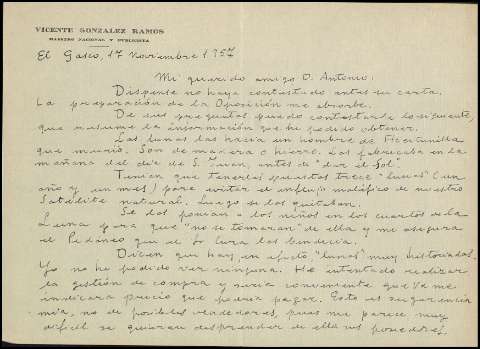 VICENTE GONZALEZ RAMOS
MAESTRO NACIONAL Y PUBLICISTA
El Gasco, 17 Noviembre 1957
Mi querido amigo D. Antonio:
Dispense no haya contestado antes su carta.
La preparación de la Oposición me absorbe.
De sus preguntas puedo contestarle lo siguiente,
que resume la información que he podido obtener.
Las lunas las hacía un hombre de
que murió. Son de madera o hueso. Las fabricaba en la
mañana del día de S. Juan, antes de "dar el Sol".
Tenían que tenerlas puestas trece "lunas" (un
año y un mes) para evitar el influjo maléfico de nuestro
Satélite natural. Luego se las quitaban.
Se las ponían a los niños en los cuartos de la
Luna para que "no se tomaran" de ella y me asegura
el Pedáneo que el Sr Cura las bendecía.
Dicen que hay, en efecto, "lunas" muy historiadas.
Yo no he podido ver ninguna. He intentado realizar
la gestión de compra y sería conveniente que Vd me
indicara precio que podría pagar. Esto es sugerencia
mía, no de posibles vendedores, pues me parece muy
difícil se quieran desprender de ellas sus poseedores.